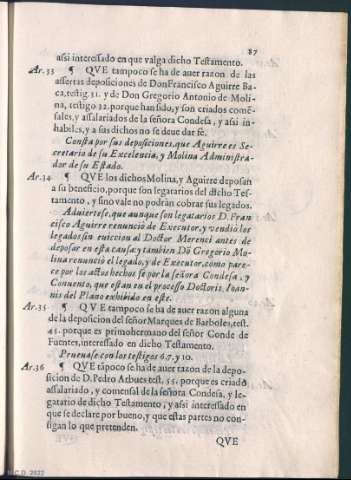 87
assi interessado en que valga dicho Testamento.
Ar.33 ¶ QVE tampoco se ha de auer razon de las
assertas deposiciones de Don Francisco Aguirre Ba-
ca, testig. 31. y de Don Gregorio Antonio de Moli-
na, testigo 32. porque han sido, y son criados comē-
sales, y assalariados de la señora Condesa, y assi in-
habiles, y a sus dichos no se deue dar fè.
Consta por sus deposiciones, que Aguirre es Se-
cretario de su Excelencia, y Molina Administra-
dor de su Estado.
Ar.34 ¶ QVE los dichos Molina, y Aguirre deposan
a su beneficio, porque son legatarios del dicho Tes-
tamento, y sino vale no podràn cobrar sus legados.
Aduiertese, que aunque son legatarios D. Fran-
cisco Aguirre renunciò de Executor, y vendiò los
legados sin euiccion al Doctor Merenci antes de
deposar en esta causa; y tambien Dō Gregorio Mo-
lina renunciò el legado, y de Executor, como pare-
ce por los actos hechos fe por la señora Condesa, y
Conuento, que estan en el processo Doctoris Ioan-
nis del Plano exhibido en este.
Ar.35 ¶ QVE tampoco se ha de auer razon alguna
de la deposicion del señor Marques de Barboles, test.
45. porque es primohermano del señor Conde de
Fuentes, interessado en dicho Testamento.
Prueuase con los testigos 6.7. y 10.
Ar.36 ¶ QVE tāpoco se ha de auer razon de la depo-
sicion de D. Pedro Arbues test. 55. porque es criado
assalariado, y comensal de la señora Condesa, y le-
gatario de dicho Testamento, y assi interessado en
que se declare por bueno, y que estas partes no con-
sigan lo que pretenden.
QVE
U.C.D. 2022